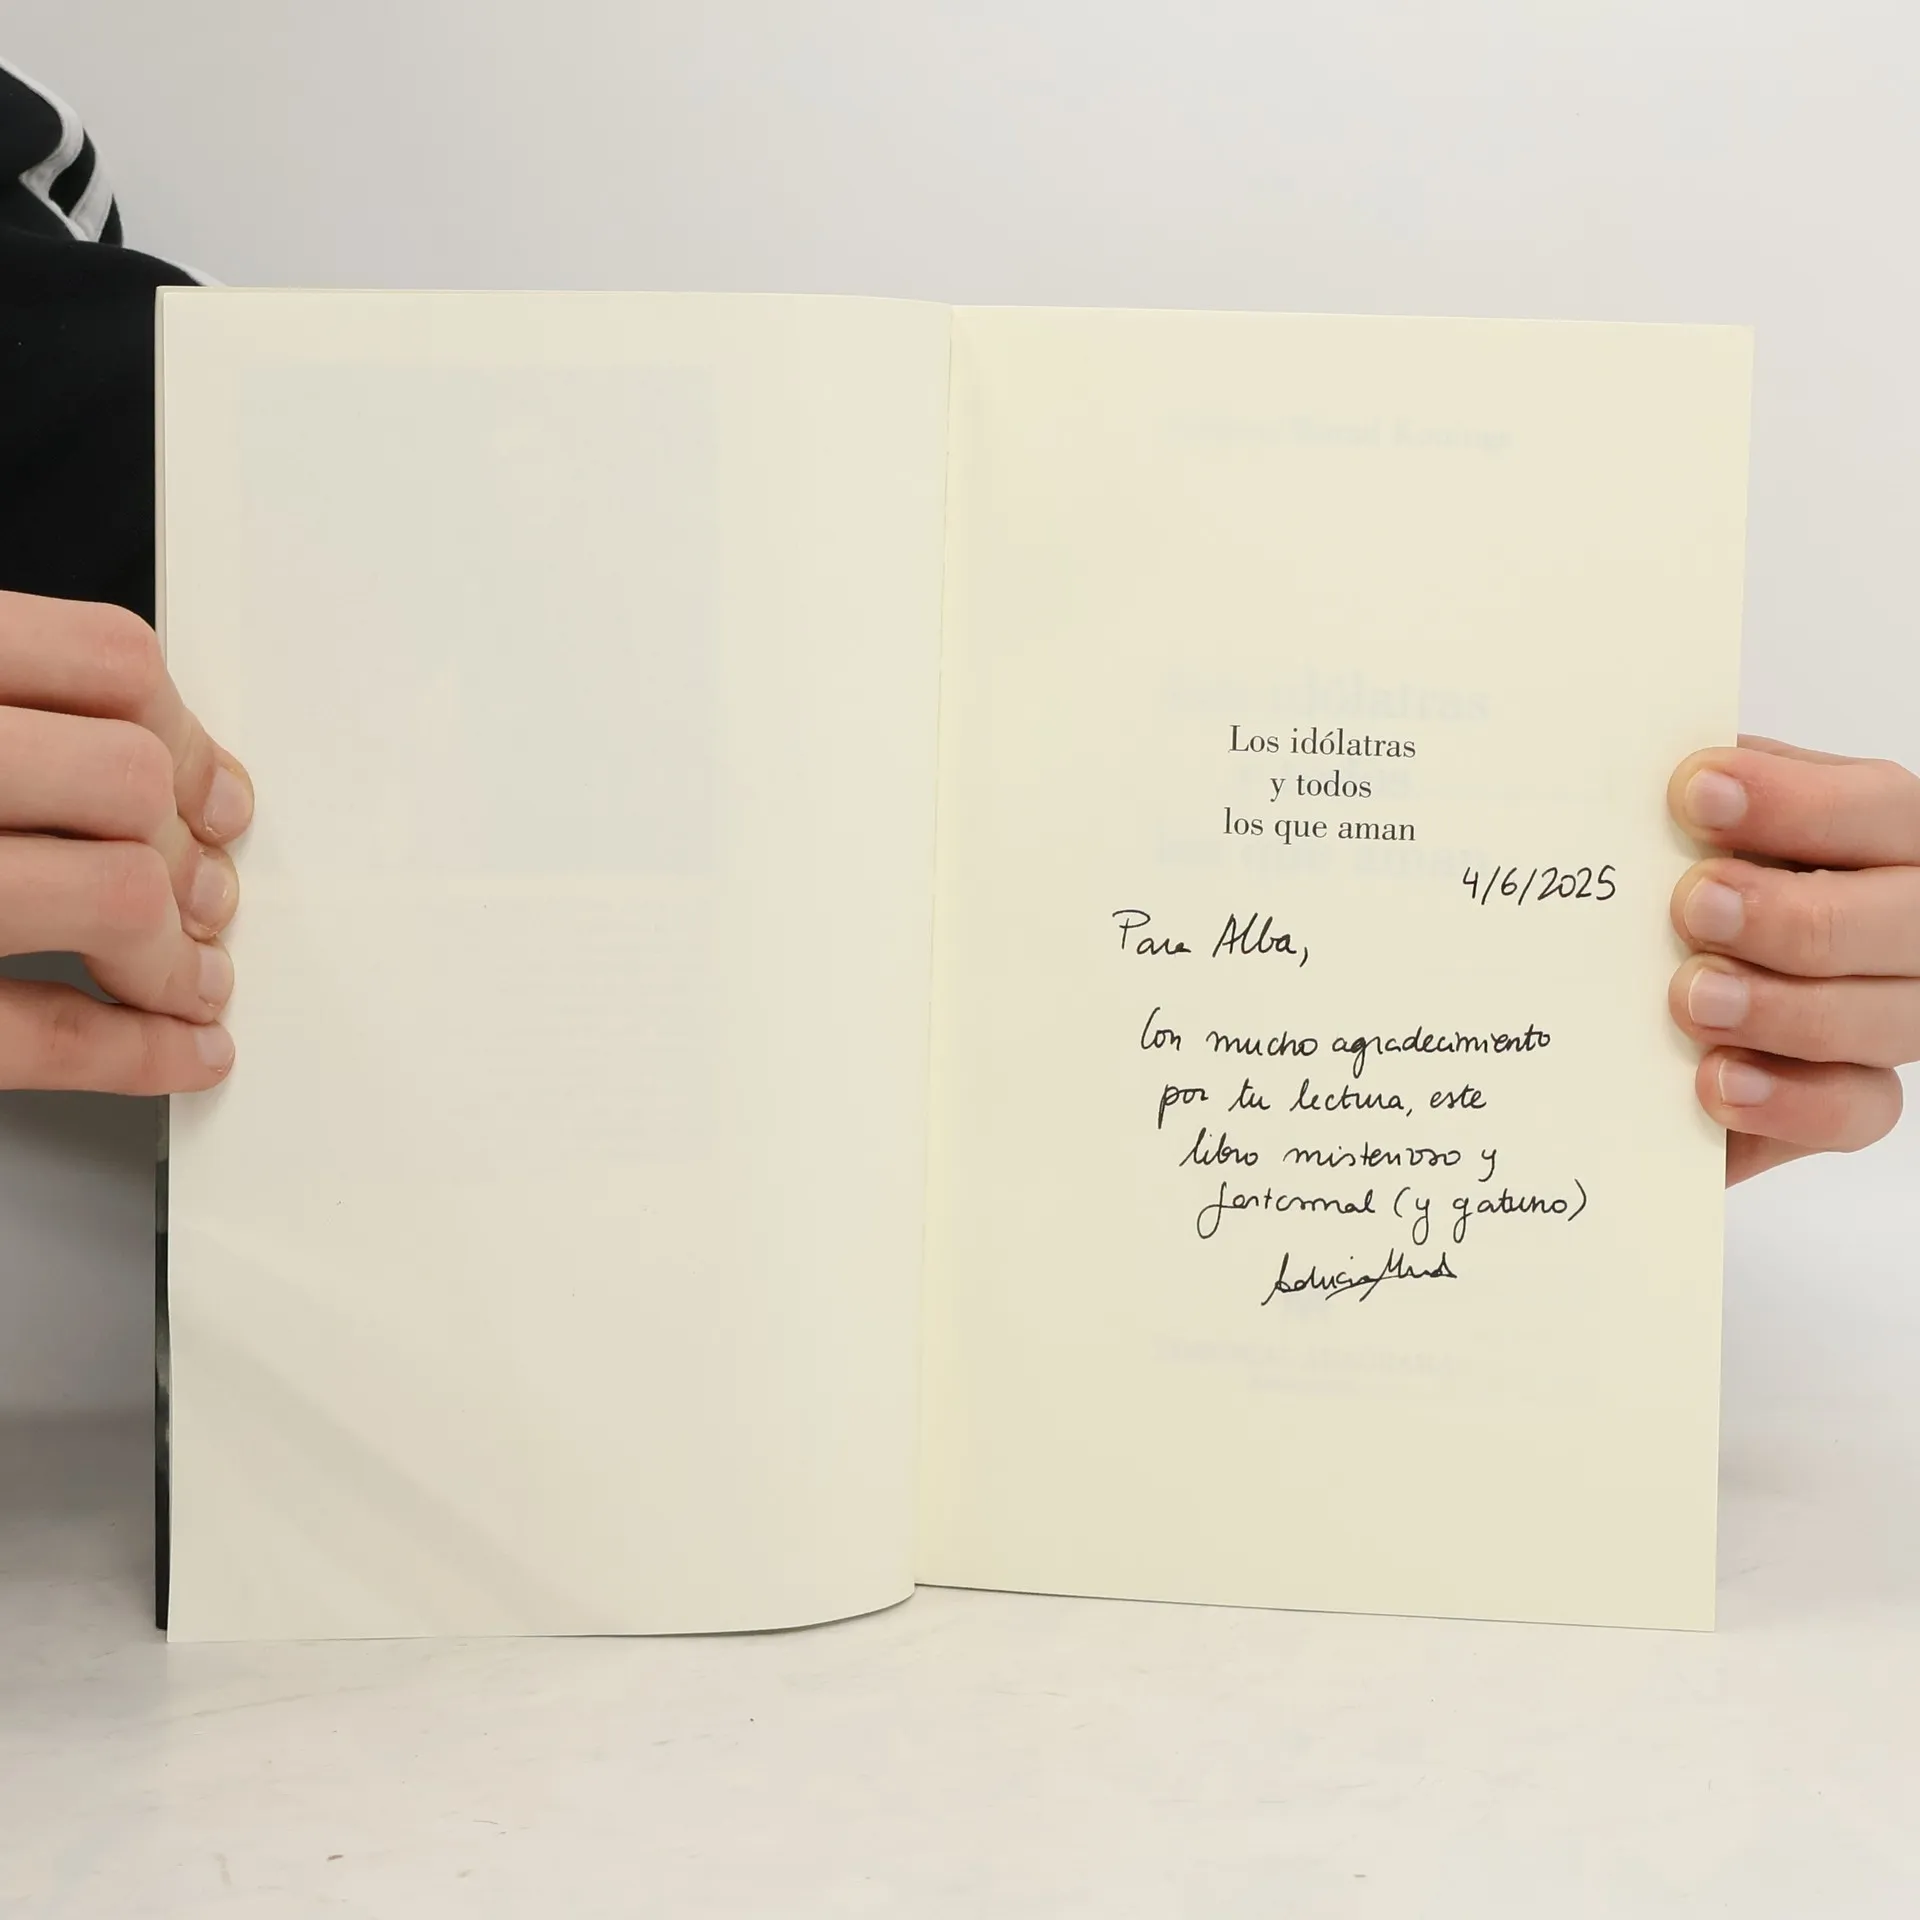 Los idólatras
y todos
los que aman
4/6/2025
Para Alba,
Con mucho agradecimiento
por tu lectura, este
libro misterioso y
fantasmal (y gatuno)